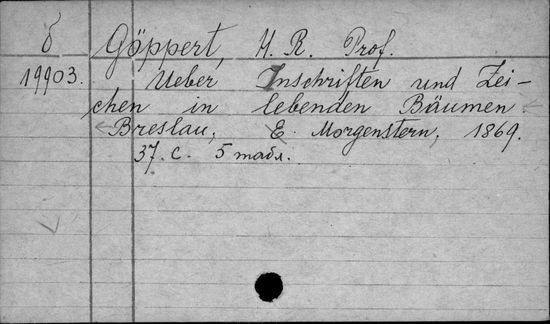 б Göppert, H. R. Prof.
19903. Ueber Inschriften und Zei-
chen in lebenden Bäumen.
Breslau, E. Morgenstern, 1869.
37. с. 5 табл.